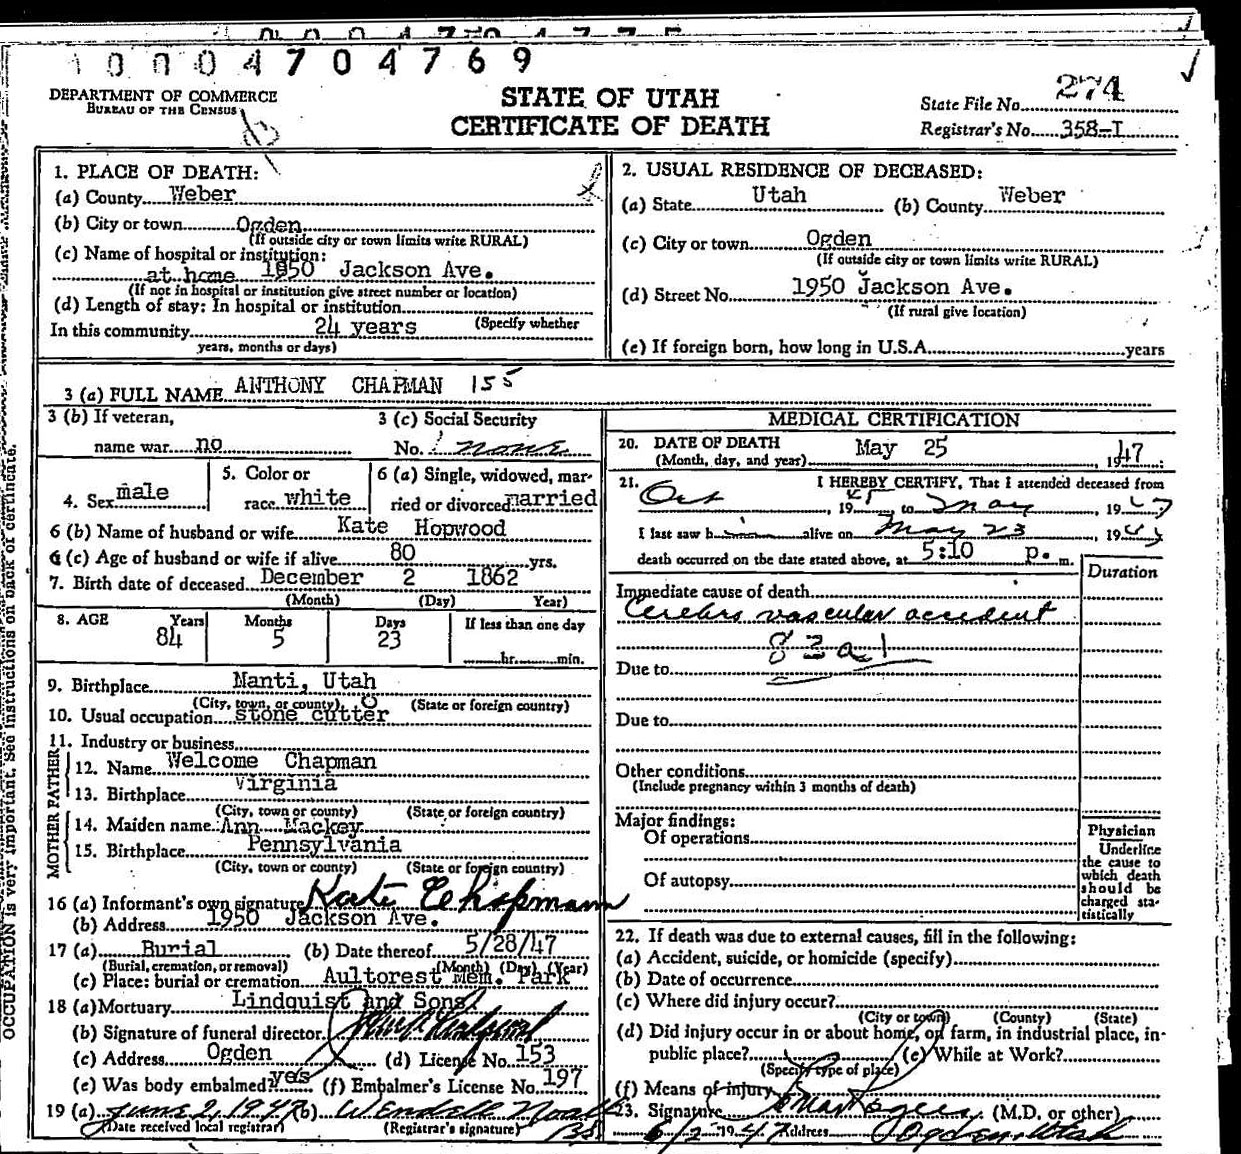 10004704769
DEPARTMENT OF COMMERCE
BUREAU OF THE CENSUS
STATE OF UTAH
CERTIFICATE OF DEATH
State File No. 274
Registrar's No. 358-I
1. PLACE OF DEATH:
(a) County Weber
(b) City or town Ogden
(If outside city or town limits write RURAL)
(c) Name of hospital or institution:
at home 1950 Jackson Ave.
(If not in hospital or institution give street number or location)
(d) Length of stay: In hospital or institution
In this community 24 years (Specify whether
years, months or days)
2. USUAL RESIDENCE OF DECEASED:
(a) State Utah (b) County Weber
(c) City or town Ogden
(If outside city or town limits write RURAL)
(d) Street No. 1950 Jackson Ave.
(If rural give location)
(e) If foreign born, how long in U.S.A. years
3 (a) FULL NAME ANTHONY CHAPMAN 155
3 (b) If veteran,
name war no
3 (c) Social Security
No. none
4. Sex male
5. Color or
race white
6 (a) Single, widowed, mar-
ried or divorced married
6 (b) Name of husband or wife Kate Hopwood
6 (c) Age of husband or wife if alive 80 yrs.
7. Birth date of deceased December 2 1862
(Month) (Day) Year)
8. AGE Years Months Days If less than one day
84 5 23 hr. min.
9. Birthplace Manti, Utah
(City, town, or county) (State or foreign country)
10. Usual occupation stone cutter
11. Industry or business
FATHER
12. Name Welcome Chapman
13. Birthplace Virginia
(City, town or county) (State or foreign country)
MOTHER
14. Maiden name Ann Mackey
15. Birthplace Pennsylvania
(City, town or county) (State or foreign country)
16 (a) Informant's own signature Kate E Chapman
(b) Address 1950 Jackson Ave.
17 (a) Burial (b) Date thereof 5/28/47
(Burial, cremation, or removal) (Month) (Day) (Year)
(c) Place: burial or cremation Aultorest Mem. Park
18 (a) Mortuary Lindquist and Sons
(b) Signature of funeral director
(c) Address Ogden (d) License No. 153
(e) Was body embalmed? yes (f) Embalmer's License No. 197
19 (a) June 2, 1947 (b) Wendell
(Date received local registrar) (Registrar's signature)
MEDICAL CERTIFICATION
20. DATE OF DEATH May 25
(Month, day, and year) 1947
21. I HEREBY CERTIFY, That I attended deceased from
Oct, 1945 to May, 1947
I last saw him alive on May 23, 1947
death occurred on the date stated above, at 5:10 p. m.
Duration
Immediate cause of death
Cerebro vascular accident
83a1
Due to
Due to
Other conditions
(Include pregnancy within 3 months of death)
Major findings:
Of operations
Of autopsy
Physician
Underline
the cause to
which death
should be
charged sta-
tistically
22. If death was due to external causes, fill in the following:
(a) Accident, suicide, or homicide (specify)
(b) Date of occurrence
(c) Where did injury occur?
(City or town) (County) (State)
(d) Did injury occur in or about home, on farm, in industrial place, in-
public place? (e) While at Work?
(Specify type of place)
(f) Means of injury
23. Signature (M.D. or other)
6/2 1947 Address Ogden, Utah
OCCUPATION is very important. See instructions on back of certificate.